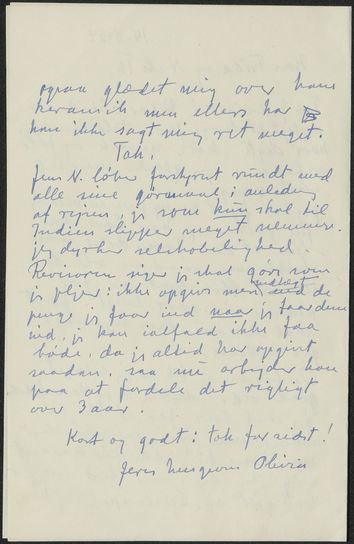 ogsaa glædet mig over hans
keramik men ellers har
han ikke sagt mig ret meget.
Tak.
Jens N. løber forskræmt rundt med
alle sine gøremaal i anledning
af rejsen, jeg som kun skal til
Indien slipper meget nemmere.
jeg dyrker selskabelighed.
Revisoren siger jeg skal gøre som
jeg plejer: ikke opgive mere indtægt end de
penge jeg faar ind naar jeg faar dem
ind, jeg kan ialfald ikke faa
bøde, da jeg altid har opgivet
saadan, saa nu arbejder han
paa at fordele det rigtigt
over 3 aar.
Kort og godt: tak for sidst!
Jeres Olivia